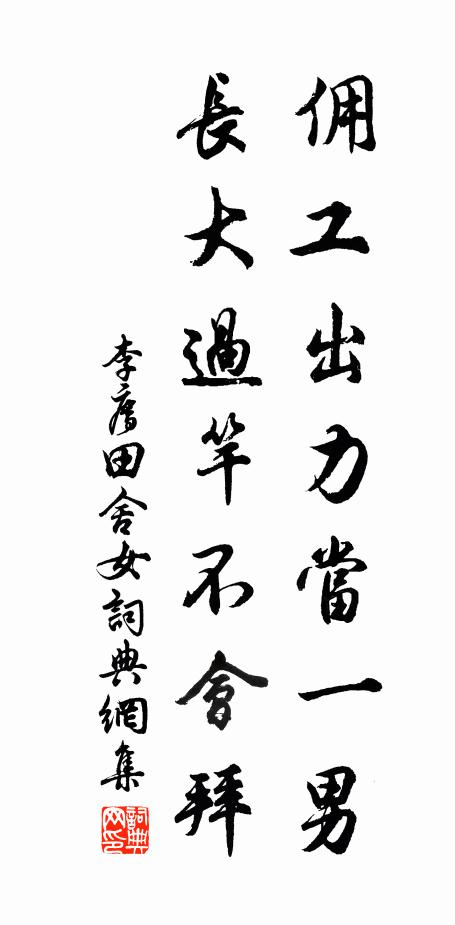 佣工出力當一男
長大過竿不會拜
李廌田舍女詞典網集
詞典
网印